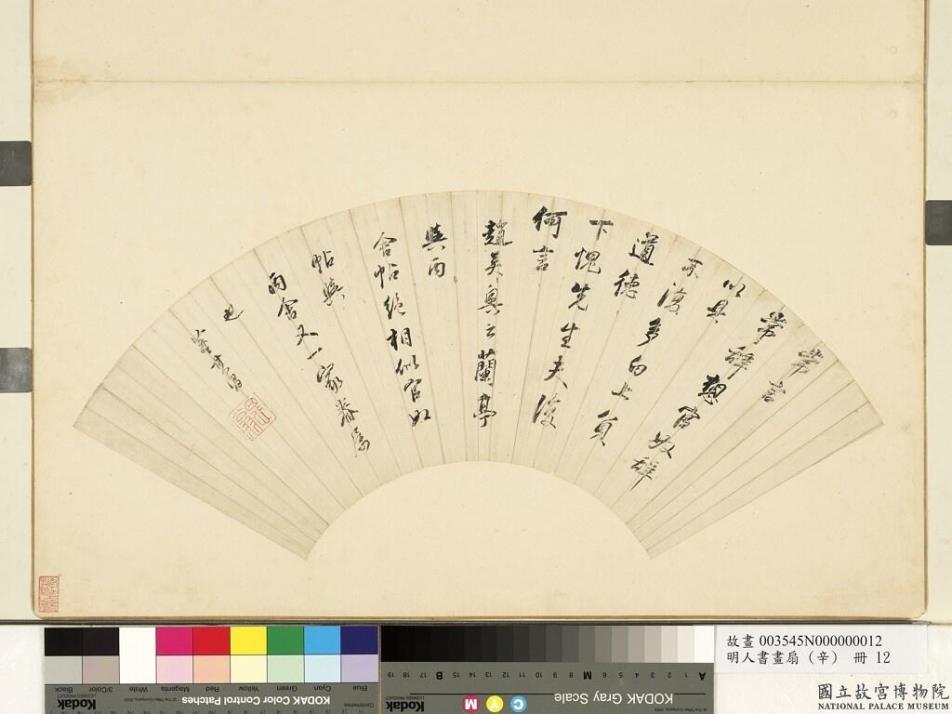 常言
常辭想官奴辭
以具
不復多白上負
道德
下愧先生夫復
何言
趙吳興云蘭亭
與丙
舍帖絕相似官奴
帖與
丙舍又一家眷屬
也
董其昌
故畫 003545N000000012
明人書畫扇（辛） 冊 12
國立故宮博物院
NATIONAL PALACE MUSEUM
KODAK Color Control Patches
Blue Cyan Green Yellow Red Magenta White 3/Color Black
KODAK Gray Scale
Kodak
Kodak
C Y M
A 1 2 3 4 5 6 M 8 9 10 11 12 13 14 15 B 17 18 19